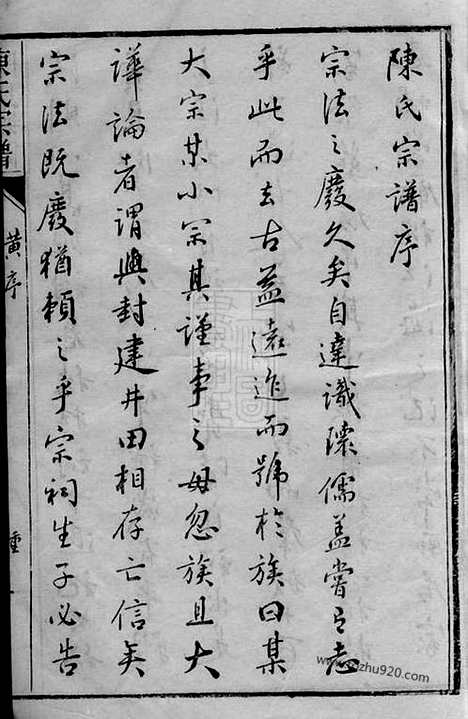 陳氏宗譜序
宗法之廢久矣自達識瓌儒蓋嘗有志
乎此而去古益遠迮而號於族曰某
大宗某小宗其謹事之毋忽族且大
譁論者謂與封建井田相存亡信矣
宗法既廢猶賴之乎宗祠生子必告
陳氏宗譜
黃序
shizhu920.com